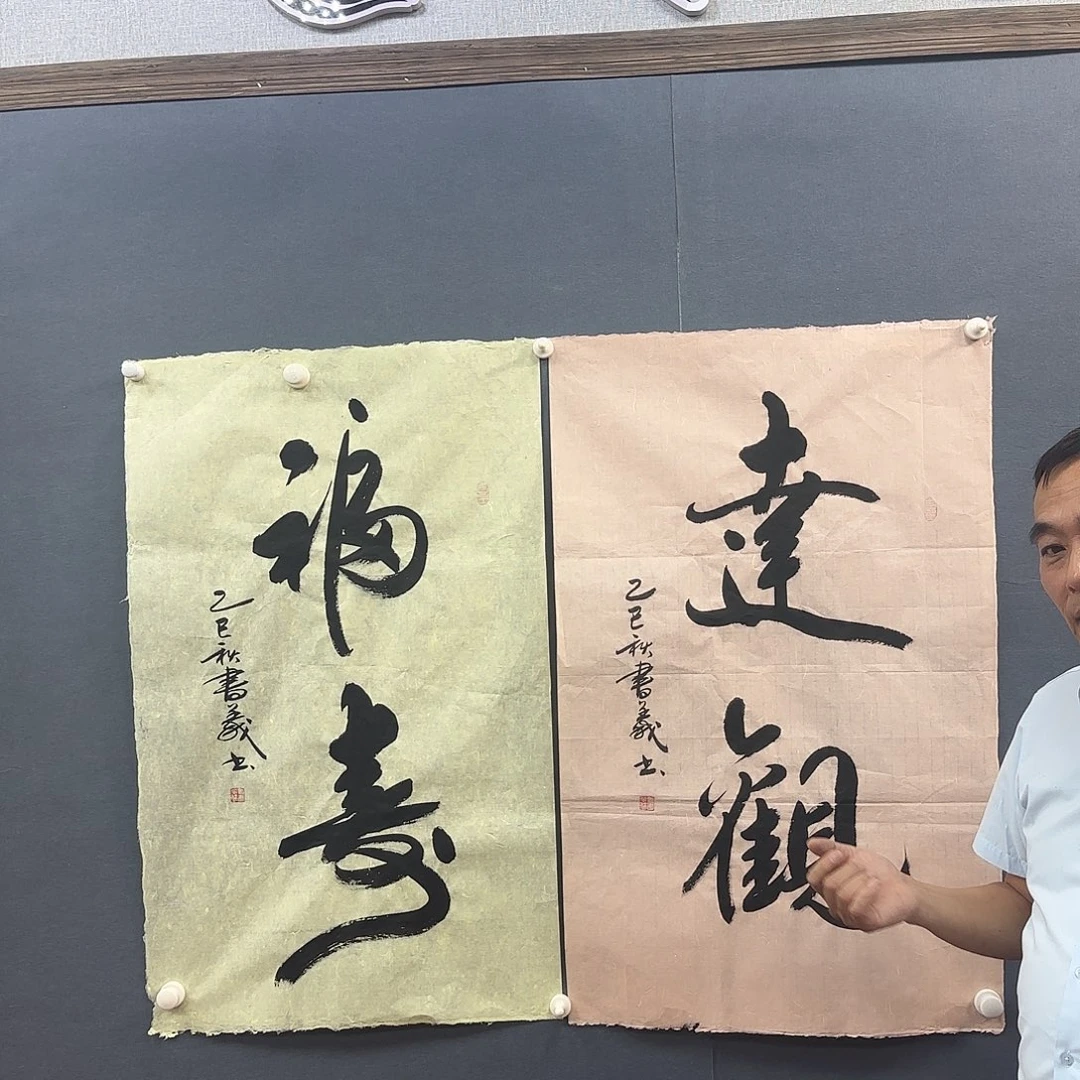 達觀
乙巳秋書義书
福壽
乙巳秋書義书